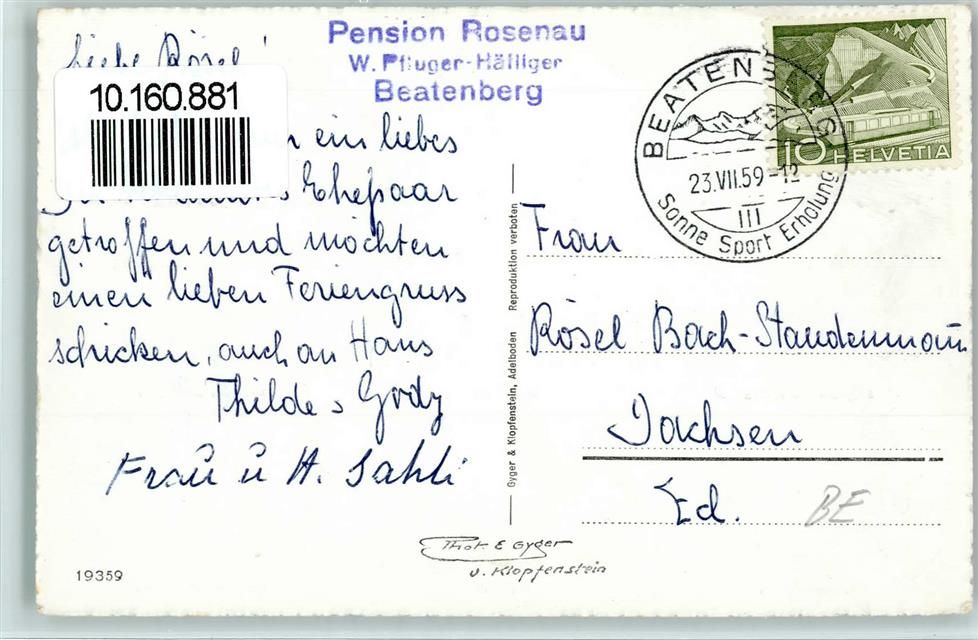 Pension Rosenau
W. Pfluger-Häfliger
Beatenberg
Liebe Rösel!
10.160.881
ein liebes
Ehepaar
getroffen und möchten
einen lieben Feriengruss
schicken, auch an Hans
Thilde & Gody
Frau u H. Sahli
BEATENBERG
23.VII.59-12
III
Sonne Sport Erholung
10 HELVETIA
Frau
Rösel Bach-Staudenmann
Dachsen
Ed.
BE
Gyger & Klopfenstein, Adelboden Reproduktion verboten
Phot. E Gyger
u. Klopfenstein
19359